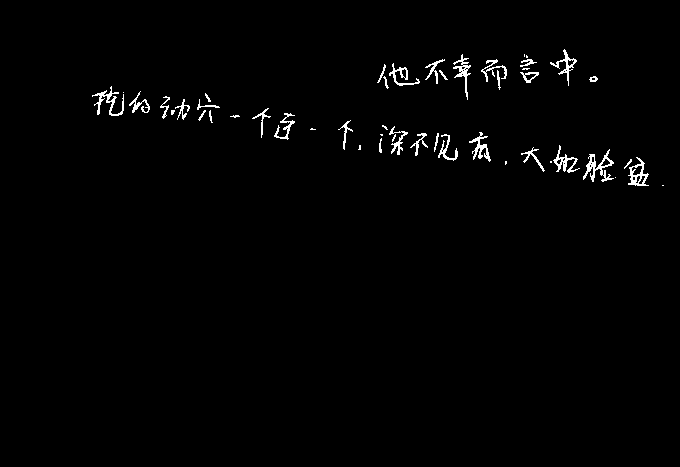 他不幸而言中。
挖的动穴一个连一个,深不见底,大如脸盆.